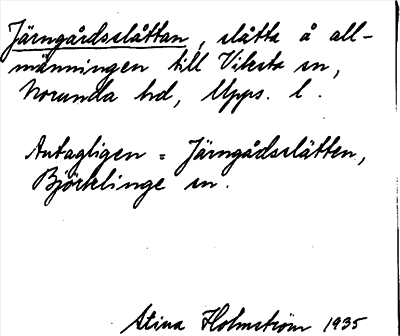 Järngårdsslåttan, slåtta å all-
männingen till Viksta sn,
Norunda hd, Upps. l.
Antagligen = Järngådsslätten,
Björklinge sn.
Stina Holmström 1935